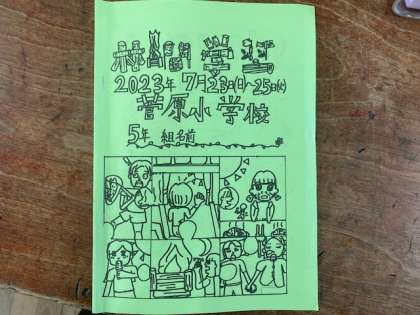 林間学習
2023年 7月23日(日)~25日(火)
菅原小学校
5年 組名前